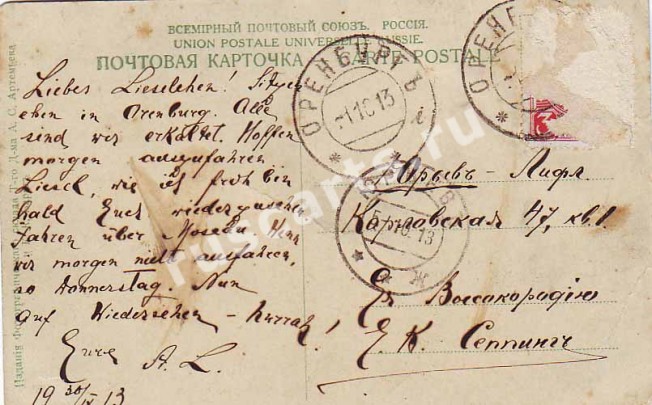 ВСЕМІРНЫЙ ПОЧТОВЫЙ СОЮЗЪ. РОССІЯ.
UNION POSTALE UNIVERSELLE RUSSIE.
ПОЧТОВАЯ КАРТОЧКА CARTE POSTALE
Liebes Lieselchen!
eben in Orenburg. Alle
sind wir erkältet. Hoffen
morgen auszufahren
Liesel, wie ich froh bin
bald Euch wiederzusehen.
fahren über Moskau. Wenn
wir morgen nicht ausfahren,
so Donnerstag. Nun
auf Wiedersehen - Hurrah!
Eure A. L.
19 30/IX 13
ОРЕНБУРГЪ
-1 10 13
ОРЕНБ
Юрьевъ - Лифл.
Карловская 47, кв. 1.
ЮРЬЕВЪ
10.13
Ж
Ея Высокородію
Е. К. Сеппингъ
Изданія
А. С. Артемьева
ruscartes.ru